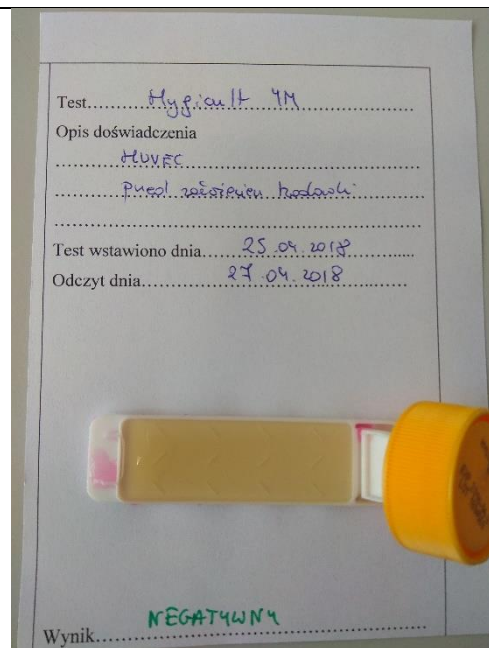 Test........Hygicult YM........
Opis doświadczenia
........HUVEC........
........przed założeniem hodowli........
Test wstawiono dnia........25.04.2018........
Odczyt dnia........27.04.2018........
NEGATYWNY
Wynik........